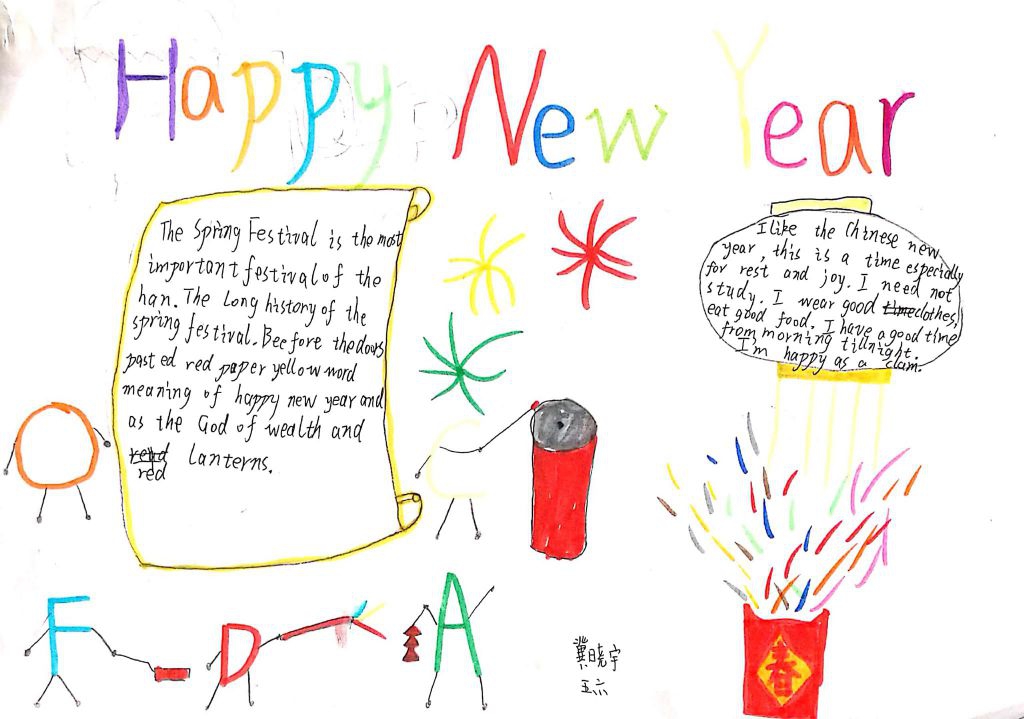 Happy New Year
The Spring Festival is the most
important festival of the
han. The Long history of the
spring festival. Beefore the doors
pasted red paper yellow word
meaning of happy new year and
as the God of wealth and
red Lanterns.
I like the Chinese new
year, this is a time especially
for rest and joy. I need not
study. I wear good clothes,
eat good food. I have a good time
from morning till night.
I'm happy as a clam.
F D A
春
晓宇
五六